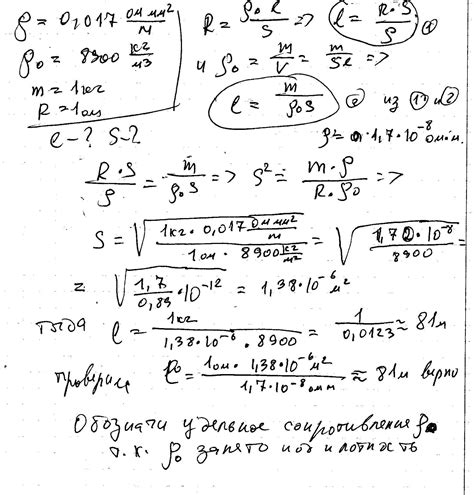 ρ = 0,017 ом мм²/м
ρ₀ = 8900 кг/м³
m = 1кг
R = 1ом
l - ? S - ?
R = ρ₀ l/S => l = R·S/ρ ①
и ρ₀ = m/V = m/Sl =>
l = m/ρ₀S ② из ① и ②
ρ = 1,7·10⁻⁸ ом·м
R·S/ρ = m/ρ₀S => S² = m·ρ/R·ρ₀ =>
S = √(1кг · 0,017 ом мм²/м / 1ом · 8900 кг/м³) = √(1,7·10⁻⁸/8900) =
= √(1,7/0,89 · 10⁻¹²) = 1,38·10⁻⁶ м²
тогда l = 1кг/1,38·10⁻⁶ · 8900 = 1/0,0123 ≈ 81м
проверим l = 1ом · 1,38·10⁻⁶ м²/1,7·10⁻⁸ ом м ≈ 81м верно
Обозначу удельное сопротивление ρ
т.к. ρ₀ занято под плотность